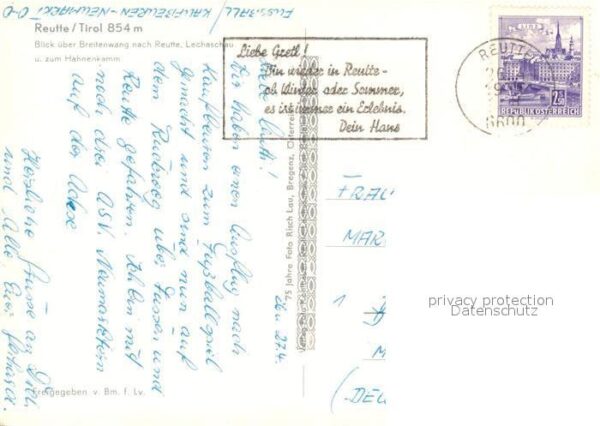 FUSSBALL / KAUFBEUREN - NEUMARKT 0-0
Reutte / Tirol 854 m
Blick über Breitenwang nach Reutte, Lechaschau
u. zum Hahnenkamm
Liebe Gretl!
Bin wieder in Reutte -
ob Winter oder Sommer,
es ist immer ein Erlebnis.
Dein Hans
REUTTE
6600
LINZ
2.50
REPUBLIK ÖSTERREICH
den 27.4.
Wir haben einen Ausflug nach
Kaufbeuren zum Fußballspiel
gemacht und sind nun auf
dem Rückweg über Füssen und
Reutte gefahren. Ich bin mit
noch drei ASV. Neumarktern
auf der Achse
Herzliche Grüße an Dich
und Alle Euer
75 Jahre Foto Risch Lau, Bregenz, Österreich
FRAU
MAR
1
M
(DEU
privacy protection
Datenschutz
Freigegeben v. Bm. f. Lv.